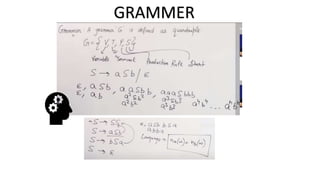 GRAMMER
Grammar: A grammar G is defined as quadruple
G = { V, T, P, S }
Variable Terminal Production Rule Start
S → aSb / ε
ε, aSb, aaSbb, aaaSbbb
ε, ab, a²Sb², a³Sb³
a²b² a³b³ a⁴b⁴ ... aⁿbⁿ
S → SS
S → aSb
S → bSa
S → ε
nₐ(ω) = n_b(ω)